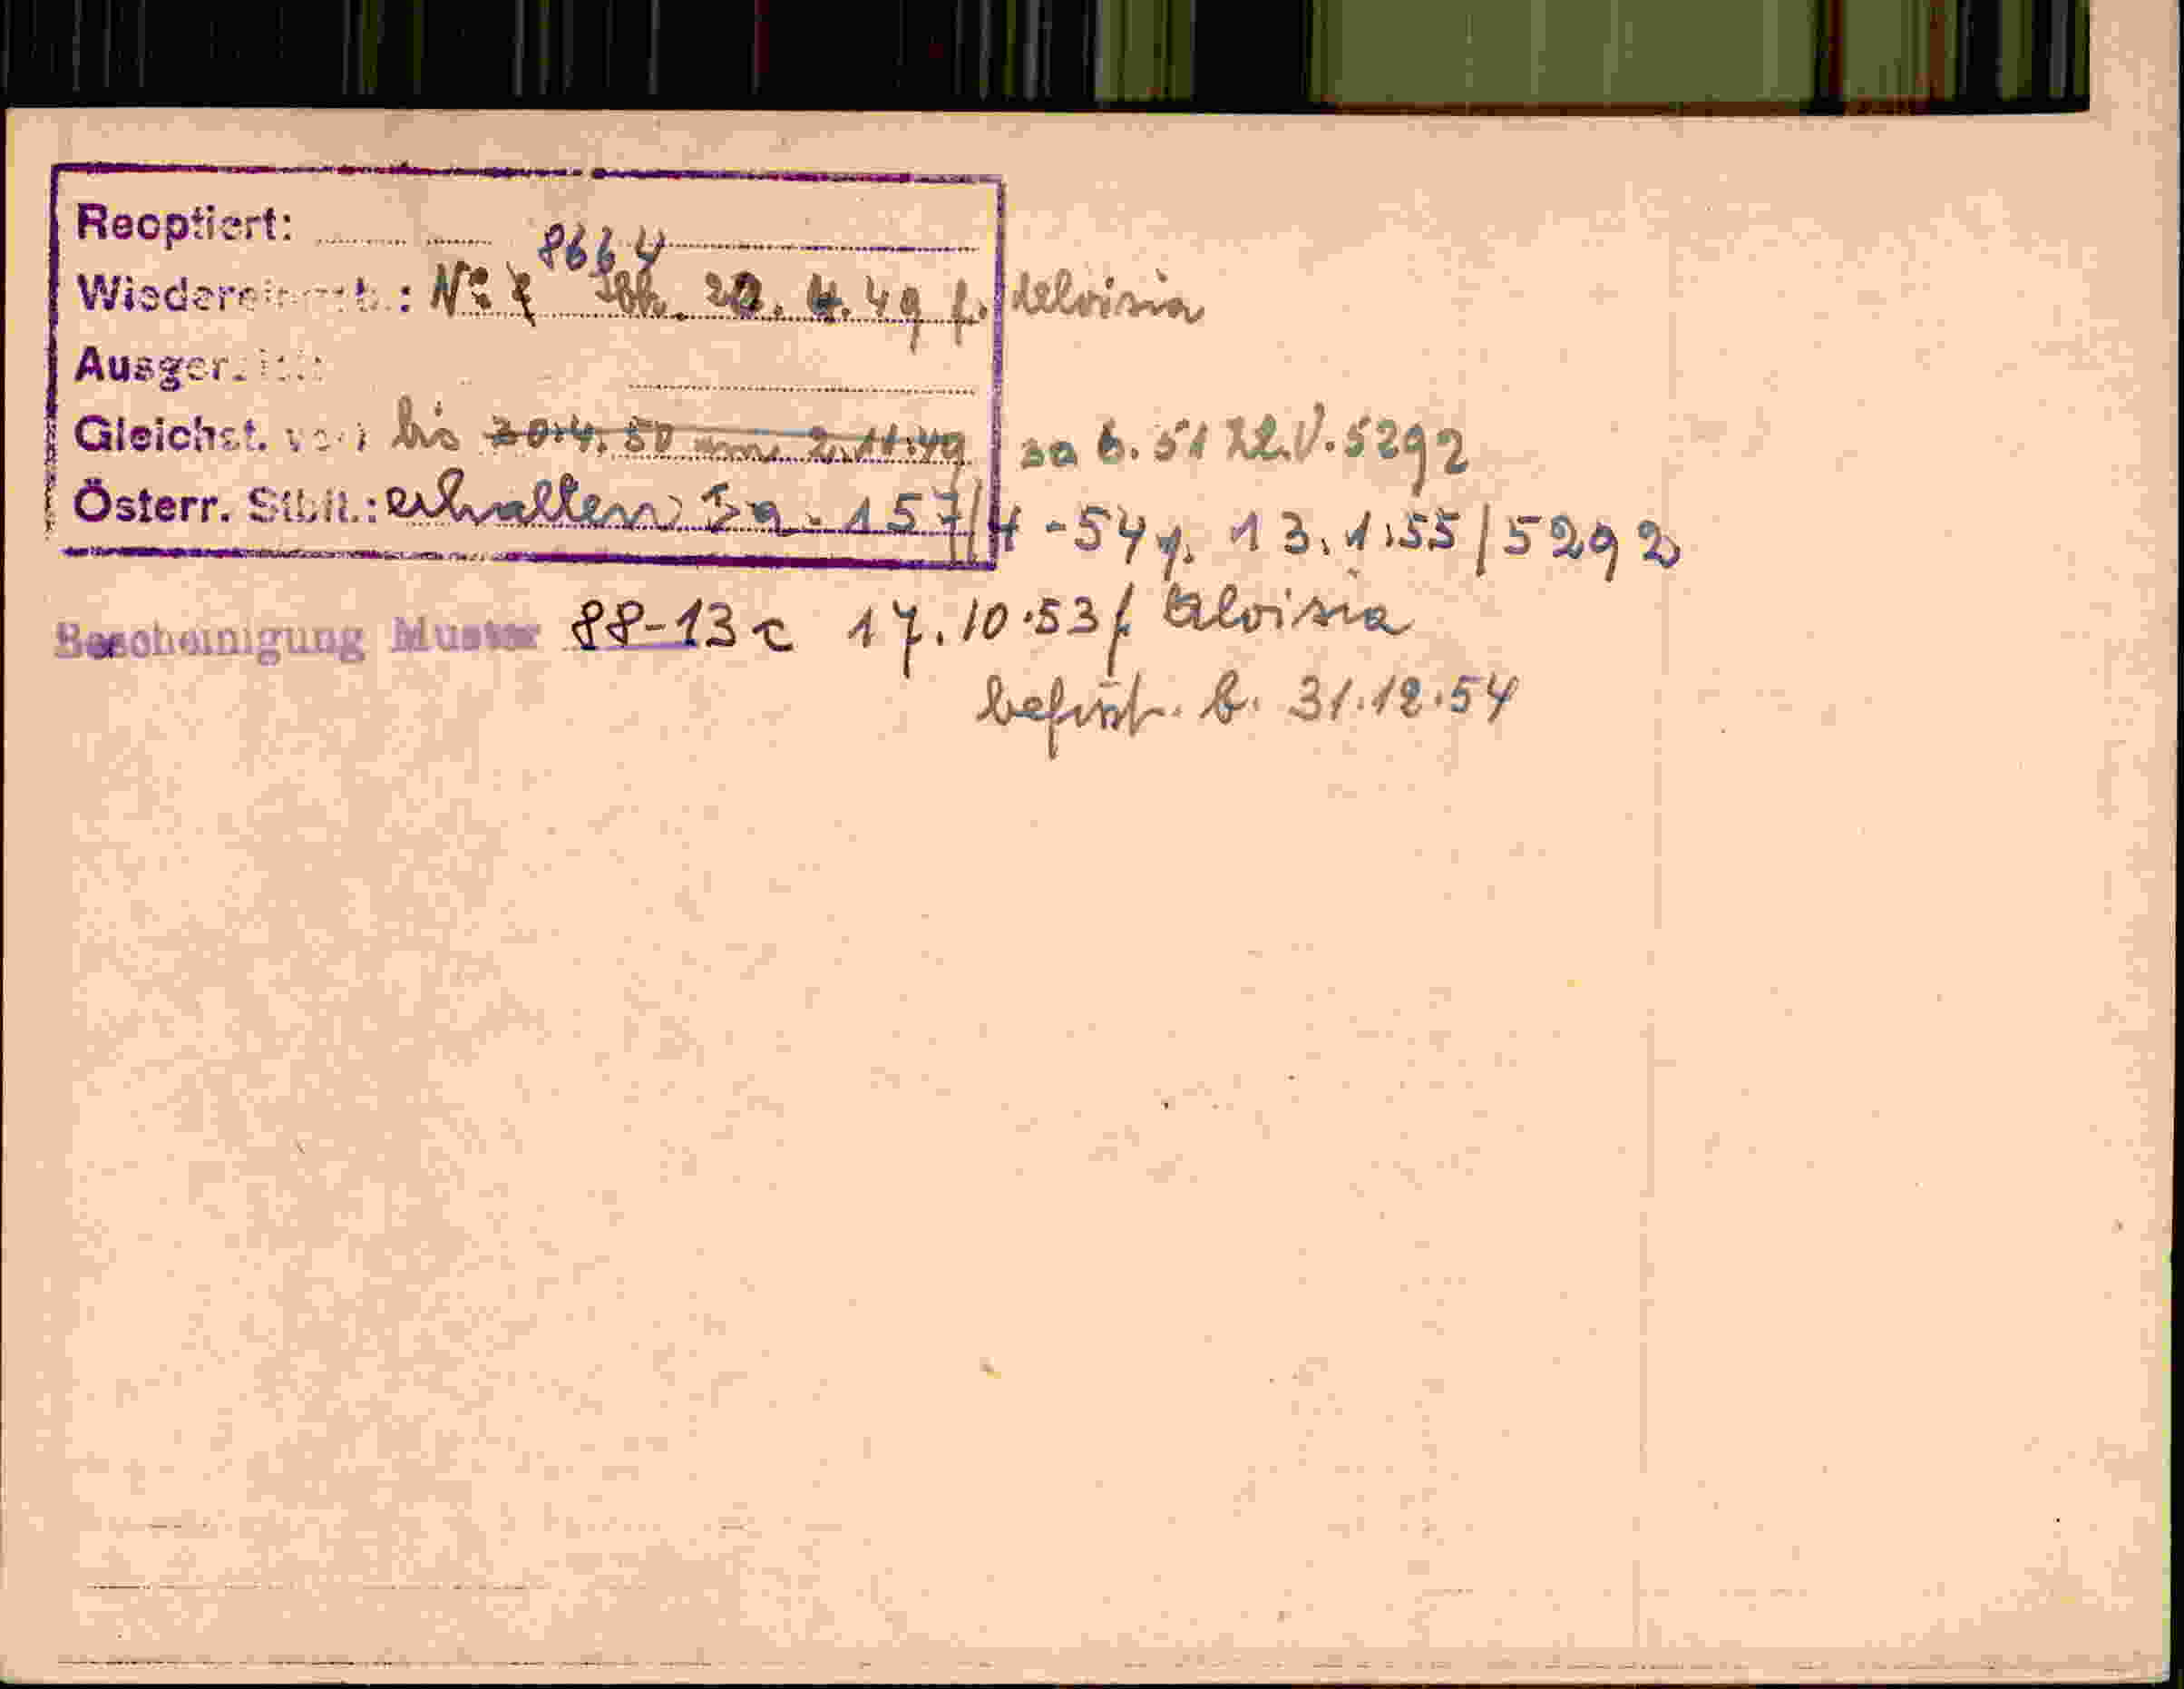 Reoptiert:
8664
Wiedereinb.: No 20. 4. 49 f. Aloisia
Ausger.
Gleichst. von bis 20.4.50 2.11.49 30 6. 51 22.V. 5292
Österr. Stbn.: erhalten Ia - 157/4 - 54 v. 13.1.55/5292
Bescheinigung Muster 88-13c 17.10.53 f Aloisia
befrist. b. 31.12.54